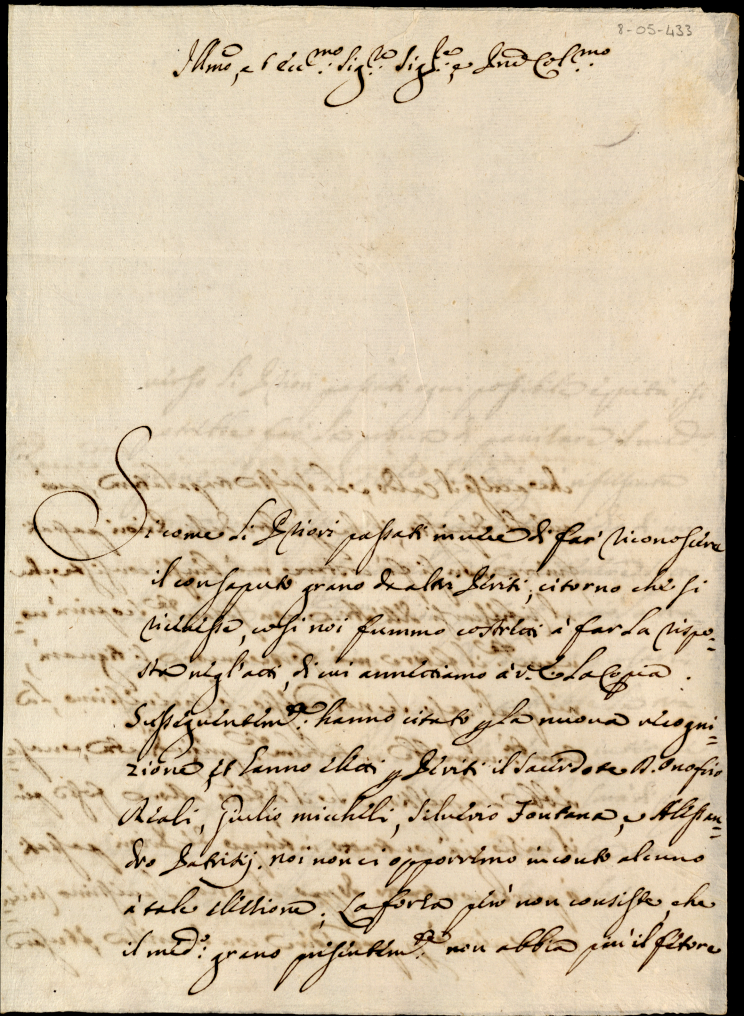 8-05-433
Illmo, e Eccmo: Sigre Sigre, e Pne Colmo
Siccome li Priori passati in vece di far riconoscere
il consaputo grano da altri Periti, citorno che si
vicesse, così noi fummo costretti à far la rispo=
sta negl'atti, di cui annettiamo à V. E. la Copia.
Susseguentemte: hanno citato p la nuova recogni=
zione, et hanno eletti p Periti il Sacerdote D. Onofrio
Reali, Giulio Micheli, Silverio Fontana, e Alessan=
dro Patritij. noi non ci opporremo in conto alcuno
à tale elettione; La forza però non consiste, che
il medo: grano presentemte: non abbia più il fetore